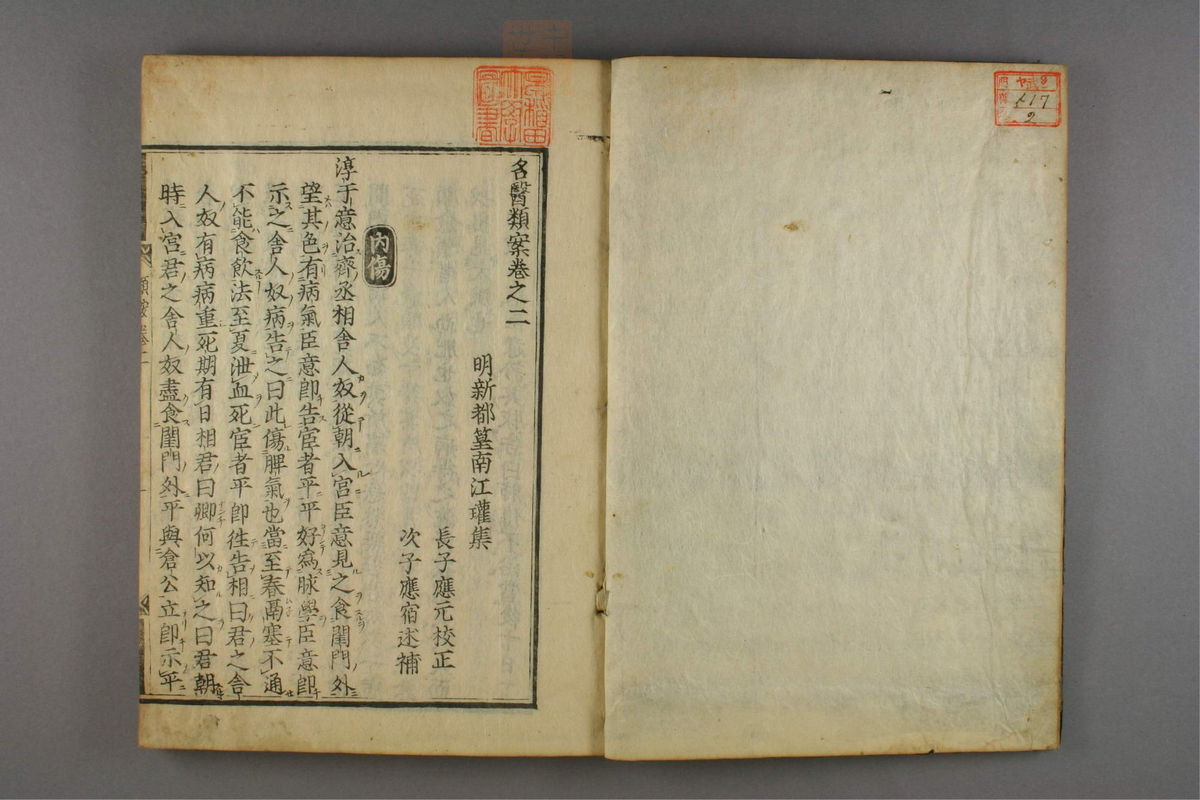 名醫類案卷之二
明新都篁南江瓘集
長子應元校正
次子應宿述補
內傷
淳于意治齊丞相舍人奴從朝入宮臣意見之食閨門外
望其色有病氣臣意卽告宦者平平好爲脉學臣意卽
示之舍人奴病告之曰此傷脾氣也當至春鬲塞不通
不能食飲法至夏泄血死宦者平卽徃告相曰君之舍
人奴有病病重死期有日相君曰卿何以知之曰君朝
時入宮君之舍人奴盡食閨門外平與倉公立卽示平
早稻田大學圖書
417
2